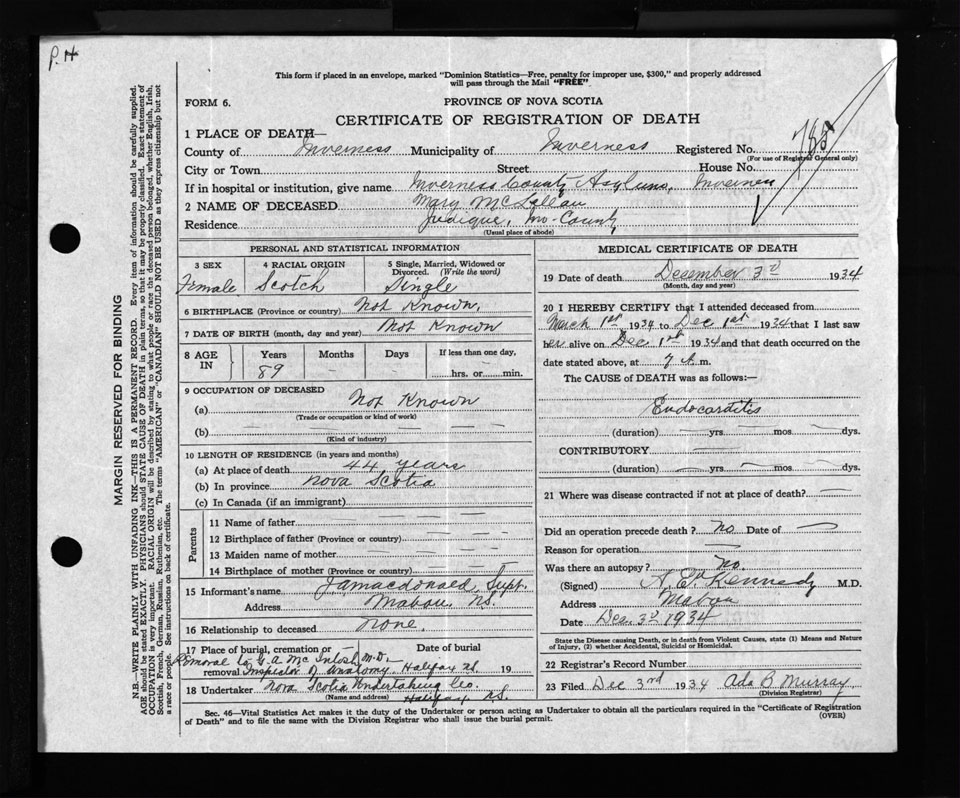 P. H
This form if placed in an envelope, marked "Dominion Statistics—Free, penalty for improper use, $300," and properly addressed
will pass through the Mail "FREE".
FORM 6.
PROVINCE OF NOVA SCOTIA
CERTIFICATE OF REGISTRATION OF DEATH
1 PLACE OF DEATH—
County of Inverness Municipality of Inverness Registered No. 785
(For use of Registrar General only)
City or Town Street House No.
If in hospital or institution, give name Inverness County Asylum, Inverness
2 NAME OF DECEASED Mary McLellan
Residence Judique, Inv-County
(Usual place of abode)
PERSONAL AND STATISTICAL INFORMATION
3 SEX 4 RACIAL ORIGIN 5 Single, Married, Widowed or
Divorced. (Write the word)
Female Scotch Single
6 BIRTHPLACE (Province or country) Not Known.
7 DATE OF BIRTH (month, day and year) Not Known
8 AGE IN Years Months Days If less than one day,
89 – – hrs. or min.
9 OCCUPATION OF DECEASED
(a) Not Known
(Trade or occupation or kind of work)
(b)
(Kind of industry)
10 LENGTH OF RESIDENCE (in years and months)
(a) At place of death 44 years
(b) In province Nova Scotia
(c) In Canada (if an immigrant)
Parents
11 Name of father
12 Birthplace of father (Province or country)
13 Maiden name of mother
14 Birthplace of mother (Province or country)
15 Informant's name J.A. Macdonald, Supt.
Address Mabou, NS.
16 Relationship to deceased none.
17 Place of burial, cremation or Date of burial
removal 19
Removal to G. A. McIntosh M.D.
Inspector of Anatomy Halifax NS
18 Undertaker Nova Scotia Undertaking Co.
(Name and address) Halifax NS.
MEDICAL CERTIFICATE OF DEATH
19 Date of death Desember 3rd 1934
(Month, day and year)
20 I HEREBY CERTIFY that I attended deceased from
March 1st 1934 to Dec 1st 1934 that I last saw
her alive on Dec 1st 1934 and that death occurred on the
date stated above, at 7 A.m.
The CAUSE OF DEATH was as follows:—
Endocarditis
(duration) yrs. mos. dys.
CONTRIBUTORY
(duration) yrs. mos. dys.
21 Where was disease contracted if not at place of death?
Did an operation precede death? No Date of
Reason for operation
Was there an autopsy? No.
(Signed) A. E. Kennedy M.D.
Address Mabou
Date Dec. 3rd 1934
State the Disease causing Death, or in death from Violent Causes, state (1) Means and Nature
of Injury, (2) whether Accidental, Suicidal or Homicidal.
22 Registrar's Record Number
23 Filed Dec 3rd 1934 Ada B Murray
(Division Registrar)
Sec. 46—Vital Statistics Act makes it the duty of the Undertaker or person acting as Undertaker to obtain all the particulars required in the "Certificate of Registration
of Death" and to file the same with the Division Registrar who shall issue the burial permit.
(OVER)
MARGIN RESERVED FOR BINDING
N.B.—WRITE PLAINLY WITH UNFADING INK—THIS IS A PERMANENT RECORD. Every item of information should be carefully supplied.
AGE should be stated EXACTLY. PHYSICIANS should STATE CAUSE OF DEATH in plain terms, so that it may be properly classified. Exact statement of
OCCUPATION is very important. RACIAL ORIGIN will be described by stating to what people or race the deceased person belonged, whether English, Irish,
Scottish, French, German, Russian, Ruthenian, etc. The terms "AMERICAN" or "CANADIAN" SHOULD NOT BE USED as they express citizenship but not
a race or people. See instructions on back of certificate.